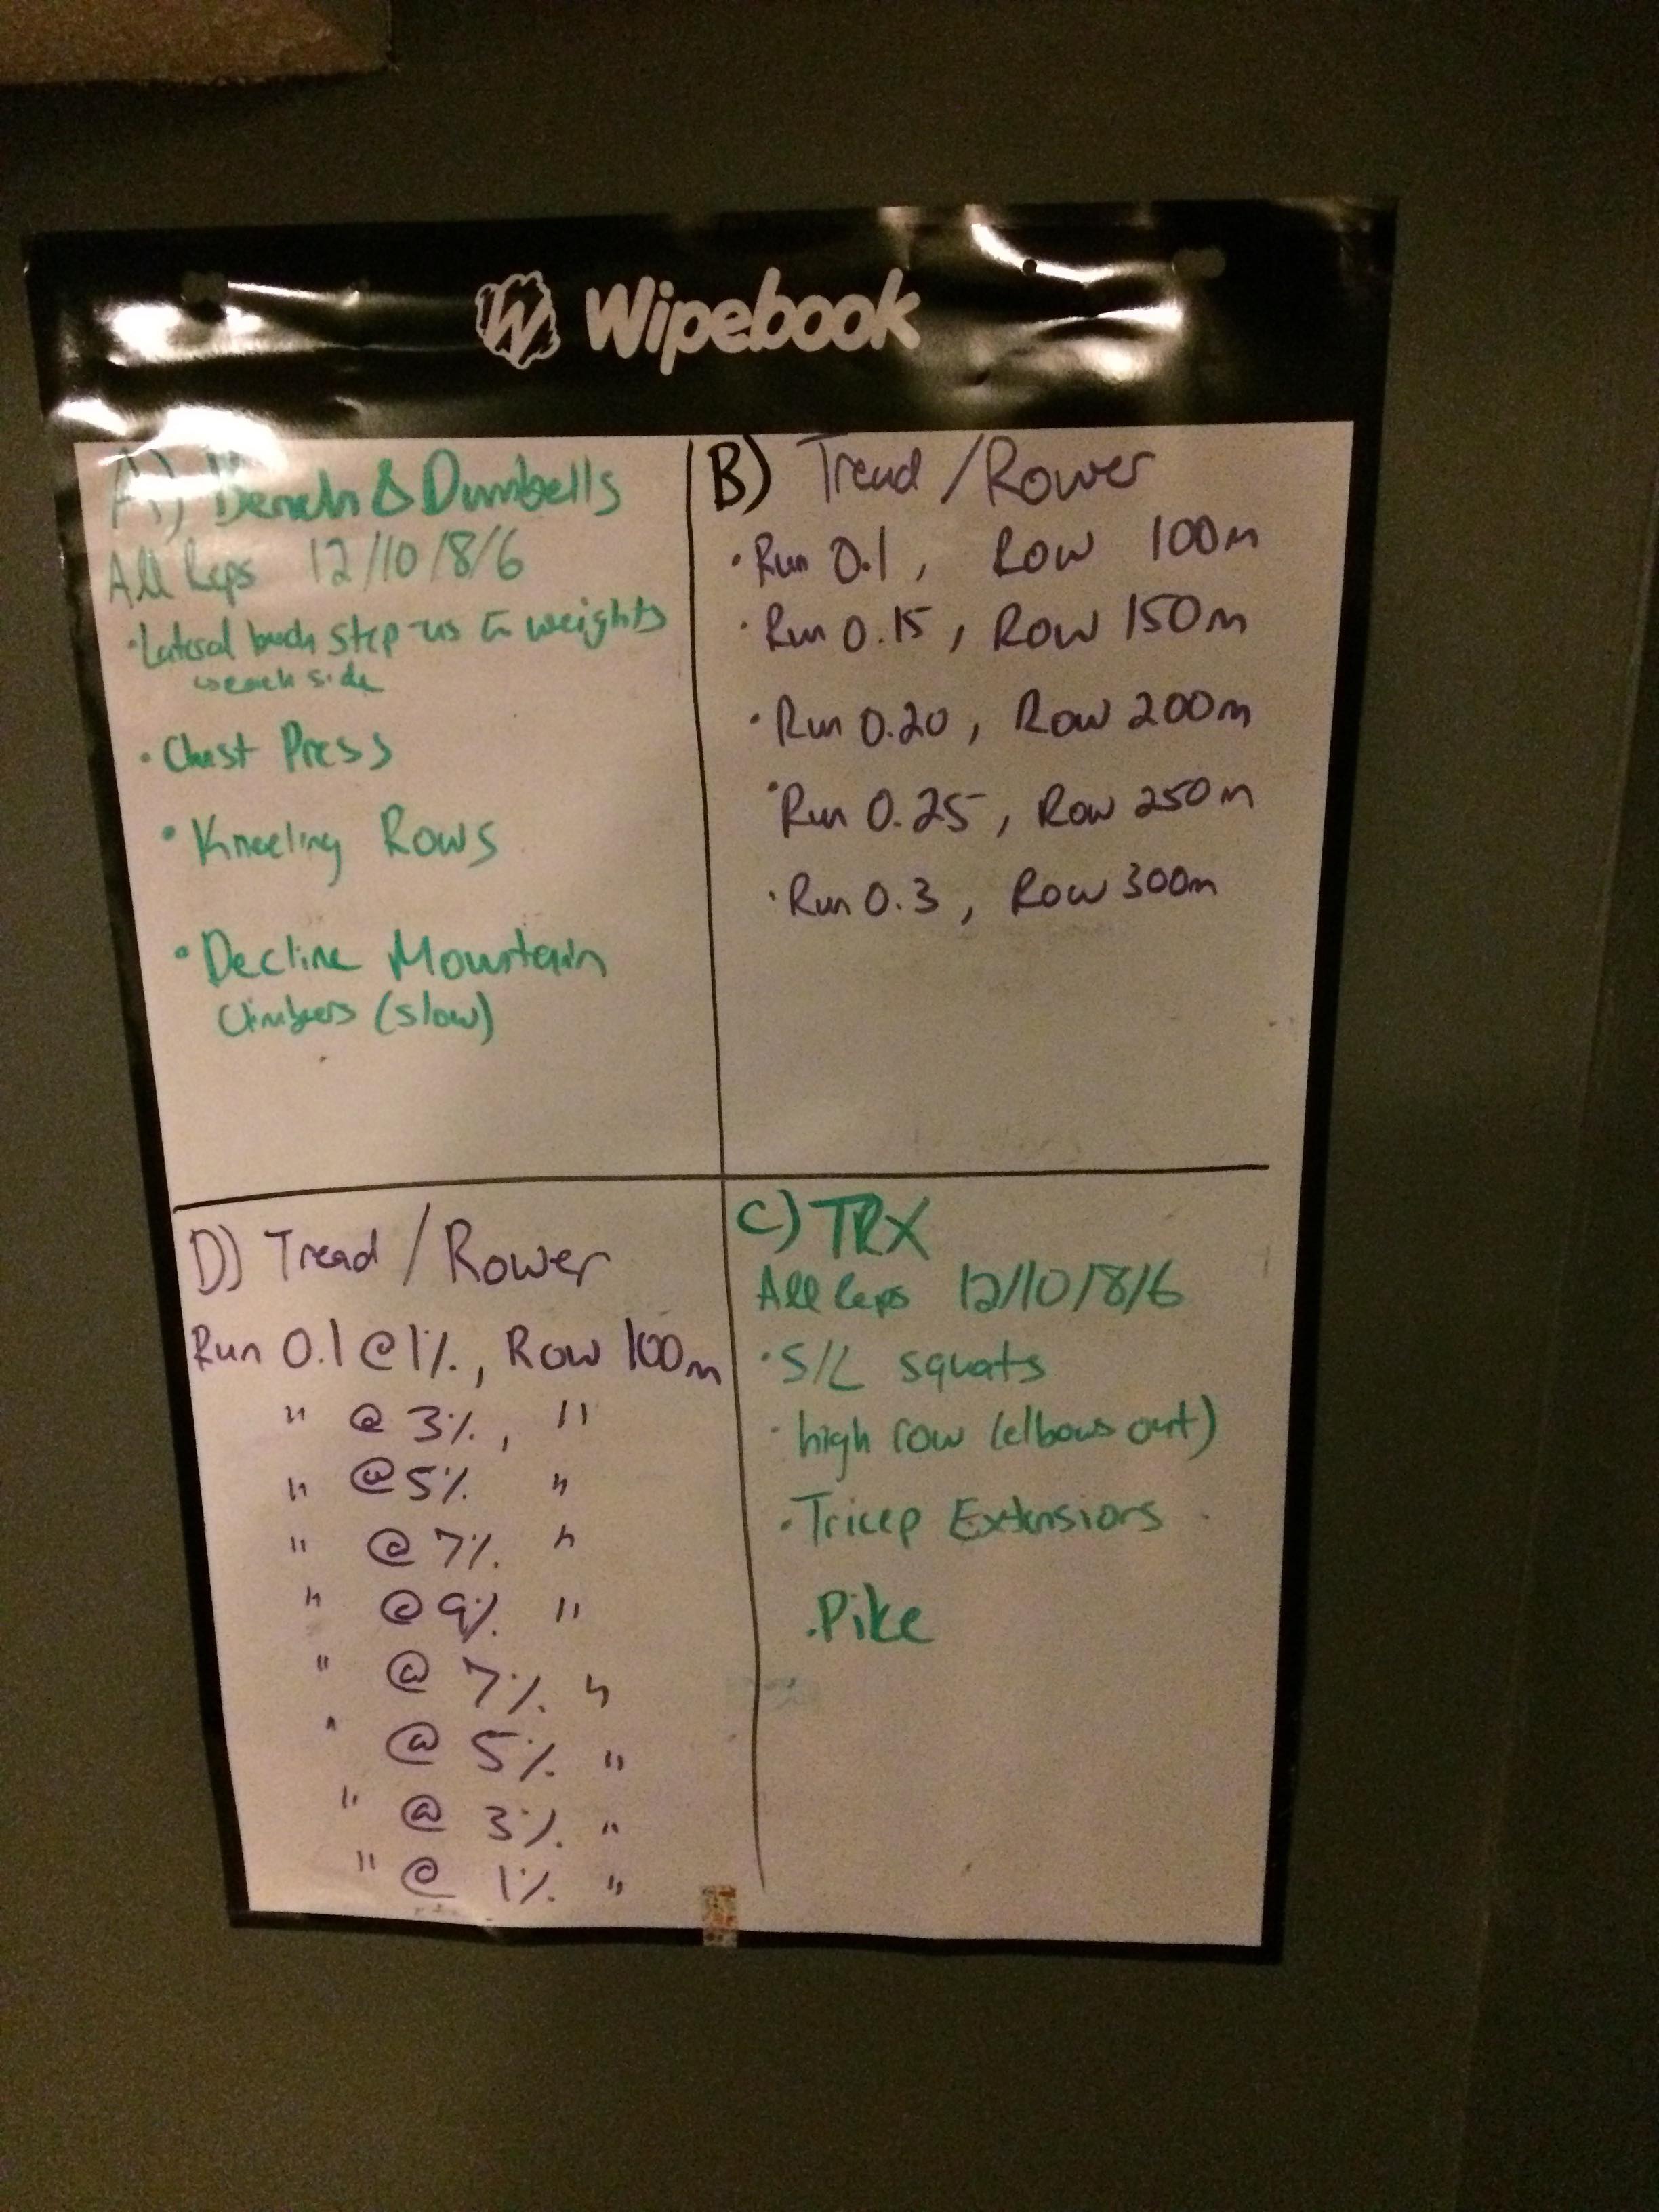 Wipebook
A) Bench & Dumbells
All Reps 12/10/8/6
• Lateral bench step-us c̄ weights
↳ each side
• Chest Press
• Kneeling Rows
• Decline Mountain
Climbers (slow)
B) Tread / Rower
• Run 0.1, Row 100m
• Run 0.15, Row 150m
• Run 0.20, Row 200m
• Run 0.25, Row 250m
• Run 0.3, Row 300m
C) TRX
All Reps 12/10/8/6
• S/L squats
• high row (elbows out)
• Tricep Extensions
• Pike
D) Tread / Rower
Run 0.1 @ 1%, Row 100m
" @ 3%, "
" @ 5% "
" @ 7% "
" @ 9% "
" @ 7% "
" @ 5% "
" @ 3% "
" @ 1% "